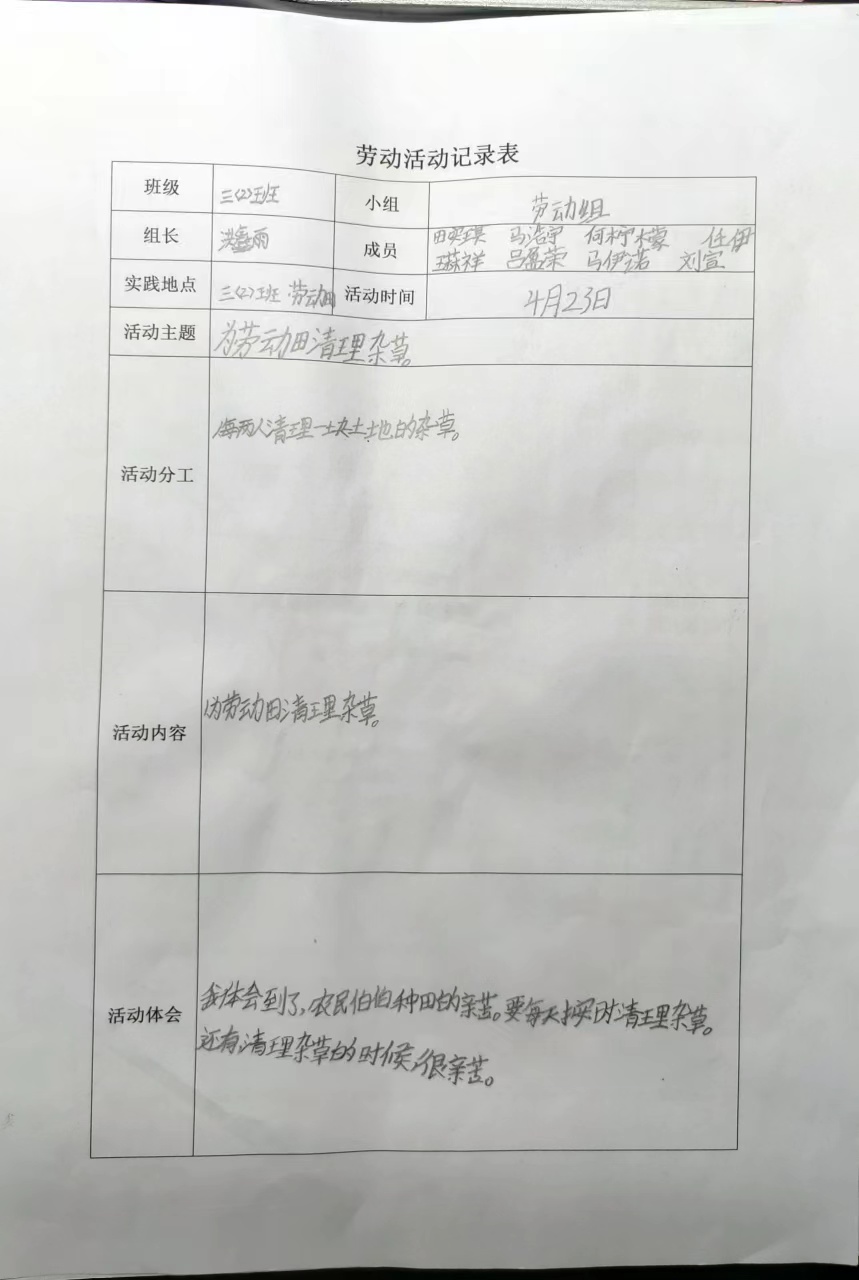 劳动活动记录表
班级 三(2)班 小组 劳动组
组长 洪鑫雨 成员 田奕琪 马浩宇 何柠檬 任伊
王森祥 吕盈荣 马伊诺 刘宣
实践地点 三(2)班 劳动田 活动时间 4月23日
活动主题 为劳动田清理杂草。
活动分工 每两人清理一块土地的杂草。
活动内容 为劳动田清理杂草。
活动体会 我体会到了,农民伯伯种田的亲苦。要每天按时清理杂草。
还有清理杂草的时候很亲苦。